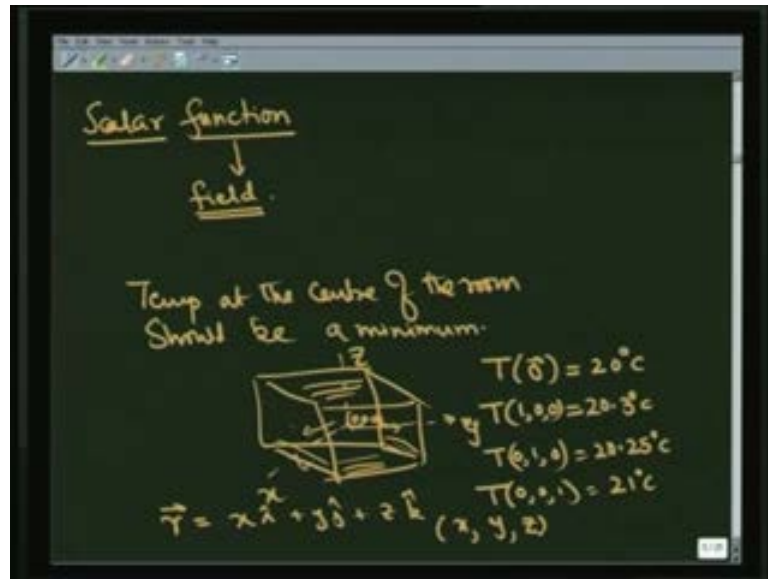 Scalar function
↓
field.
Temp at the Centre of the room
Should be a minimum.
z
y
x
T(0⃗) = 20°c
T(1,0,0)=20.3°c
T(0,1,0) = 20.25°c
T(0,0,1) = 21°c
r⃗ = xî + yĵ + zk̂ (x, y, z)